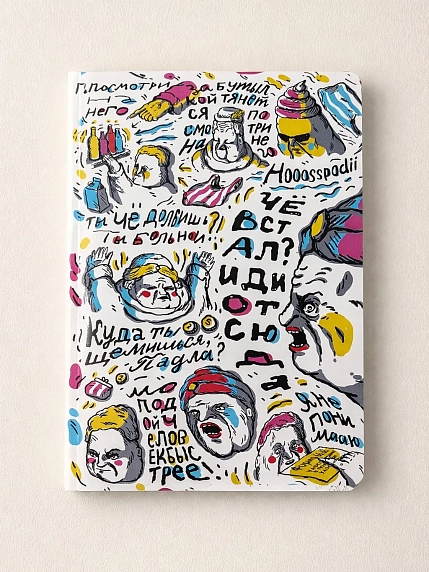 посмотри
на
него
за бутыл
кой тянет
ся по
смотри
на не
Hooosspadii
ты чё долбишь?
Ты больной...
ЧЁ
ВСТ
АЛ?
ИДИ
ОТ
СЮ
ДА
Куда ты
щемишься,
Падла?
МО
ЛОД
ОЙ Ч
ЕЛОВ
ЕК БЫС
ТРЕЕ!
Я не
пони
мааю